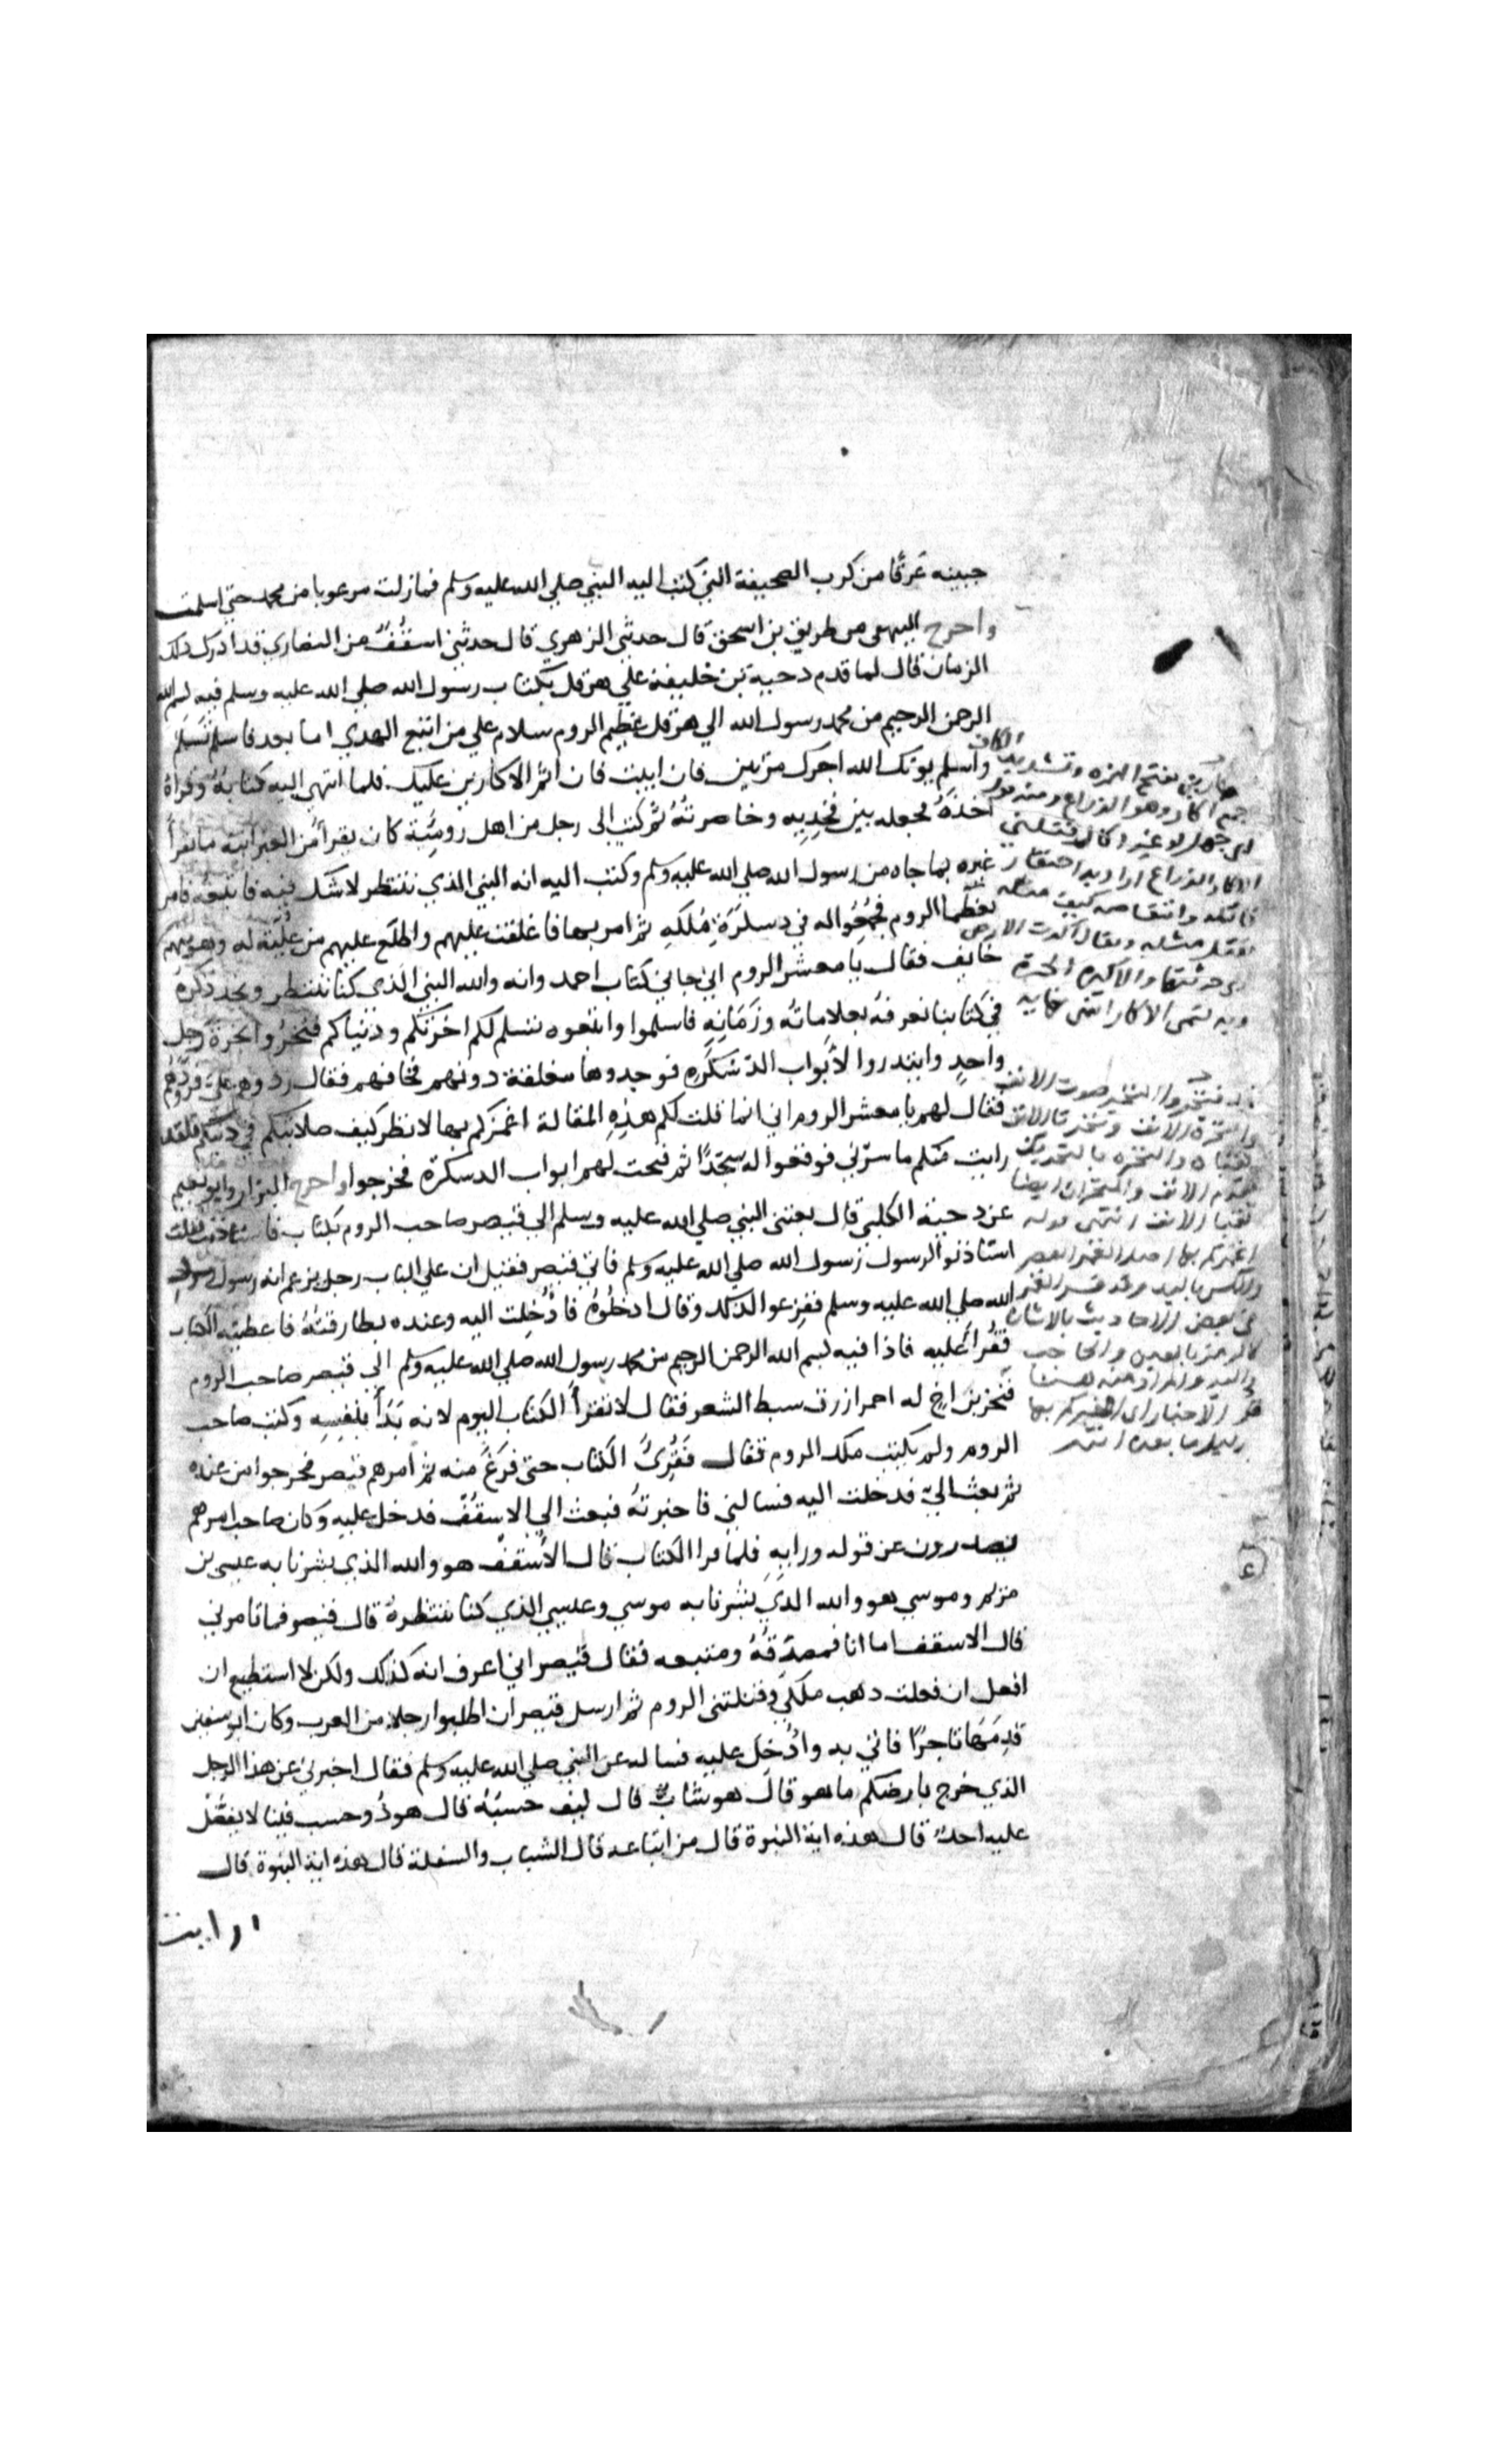 جبينه عَرَقًا من كرب الصحيفة التي كتب اليه النبي صلي الله عليه وسلم فما زلت مرعوبا من محمد حتي اسلمت
واخرج البيهقي من طريق بن اسحق قال حدثني الزهري قال حدثني اسقُفٌ من النصاري قد ادرك ذلك
الزمان قال لما قدم دحية بن خليفة علي هرقل بكتاب رسول الله صلي الله عليه وسلم فيه بسم الله
الرحمن الرحيم من محمد رسول الله الي هرقل عظيم الروم سلام علي من اتبع الهدي اما بعد فاسلم تسلم
واسلم يوتك الله اجرك مرتين فان ابيت فان اثم الاكارين عليك فلما انتهي اليه كتابهُ وقراهُ
اخذهُ فجعله بين فخِذيه وخاصرتهُ ثم كتب الى رجل من اهل روسِيَة كان يقرأ من العبرانية ما يقرأ
غيره بما جاه من رسول الله صلي الله عليه وسلم وكتب اليه انه النبي الذي ننتظر لاشك فيه فاتبعه فامر
بعظما الروم فجُمِعُوا له في دسكَرَةِ مُلكَهِ ثم امر بها فاغلقت عليهم واطلَع عليهم من عُلِيّة له وهو منهم
خايف فقال يا معشر الروم اني جاني كتاب احمد وانه والله النبي الذي كنا ننتظر ونجد ذكرهُ
في كتابنا نعرفهُ بعلاماته وزَمَانِهِ فاسلموا واتبعوه تسلم لكم اخرتكم ودنياكم فنخروا نخرة رجل
واحدٍ وابتدروا لأبواب الدسكره فوجدوها مغلقة دونهم فخافهم فقال ردوهم علي فردوهم
فقال لهم يا معشر الروم اني انما قلت لكم هذه المقالة اغمزكم بها لانظر كيف صلابتكم في دينكم فلقد
رايت منكم ما سرّني فوقعوا له سجّدًا ثم فتحت لهم ابواب الدسكرة فخرجوا واخرج البزار وابو نعيم
عن دحية الكلبي قال بعثني النبي صلي الله عليه وسلم الي قيصر صاحب الروم بكتاب فاستاذنت فقلت
استاذنوا لرسول رسول الله صلي الله عليه وسلم فاتي قيصر فقيل ان علي الباب رجل يزعم انه رسول رسول
الله صلي الله عليه وسلم ففزعوا لذلك وقال ادخلُوهُ فادُخِلت اليه وعنده بطارقتُهُ فاعطيته الكتاب
فقُرأَ عليه فاذا فيه بسم الله الرحمن الرحيم من محمد رسول الله صلي الله عليه وسلم الي قيصر صاحب الروم
فنخر بن اخ له احمر ازرق سبط الشعر فقال لا تقرأ الكتاب اليوم لانه بَدَأَ بنفسِهِ وكتب صاحب
الروم ولم يكتب ملك الروم فقال فَقُرِئَ الكتاب حتى فرَغَ منه ثم امرهم قيصر فخرجوا من عنده
ثم بعث اليّ فدخلت اليه فسالني فاخبرتهُ فبعث الي الاسقُفّ فدخل عليه وكان صاحب امرهم
يصدرون عن قوله ورايه فلما قرا الكتاب قال الأسقف هو والله الذي بشرنا به عيسى بن
مريم وموسي هو والله الذي بشرنا به موسي وعيسي الذي كنا ننتظرهُ قال قيصر فما تامرني
قال الاسقف اما انا فمصدّقهُ ومتبعه فقال قيصر اني اعرف انه كذلك ولكن لا استطيع ان
افعل ان فعلت ذهب ملكي وقتلتني الروم ثم ارسل قيصر ان اطلبوا رجلا من العرب وكان ابو سفين
قدِمَهَا تاجرًا فاتي به وادُخِل عليه فساله عن النبي صلي الله عليه وسلم فقال اخبرني عن هذا الرجل
الذي خرج بارضكم ما هو قال هو شابٌّ قال كيف حسبُهُ قال هو ذُو حسب فينا لا يفضُل
عليه احدٌ قال هذه اية النبوة قال من اتباعه قال الشباب والسفلة قال هذه اية النبوة قال
ارايت
بفتح الهمزه وتشديد الكاف
جمع اكار وهو الزراع ومنه قول
ابي جهل لو غير اكار قتلني
الاكار الزراع اراد به احتقار
وانتقاصه كيف مثله
يقتل مثله ويقال اكرت الارض
اي حرثتها
صوت الانف
والنخره بالتحريك
مقدم الانف والمنخران ايضا
ثقبا الانف انتهى قوله
اغمزكم بها اصل الغمز العصر
والكبس باليد وقد فسر الغمز
في بعض الاحاديث بالاشارة
كالرمز بالعين والحاجب
واليد والمراد منه هنا
بدليل ما بعده انتهى